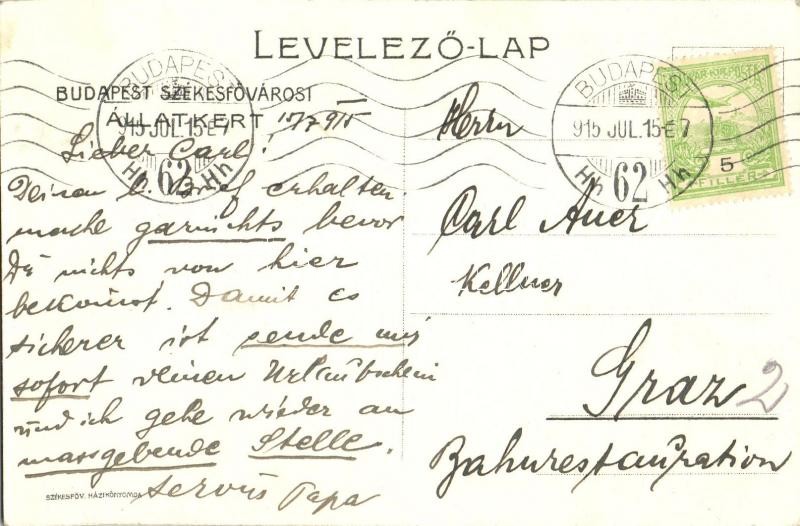 LEVELEZŐ-LAP
BUDAPEST SZÉKESFŐVÁROSI
ÁLLATKERT
BUDAPEST
915 JUL.15-E7
Hh 62 Hh
15/7 915
Lieber Carl!
Deinen l. Brief erhalten
mache garnichts bevor
Du nichts von hier
bekomst. Damit es
sicherer ist sende mir
sofort deinen Urlaubschein
und ich gehe wieder an
massgebende Stelle.
Servus Papa
SZÉKESFŐV. HÁZI KÖNYOMDA
BUDAPEST
915 JUL.15-E7
Hh 62 Hh
MAGYAR KIR. POSTA
5
FILLÉR
Herrn
Carl Auer
Kellner
Graz 2
Bahnrestauration